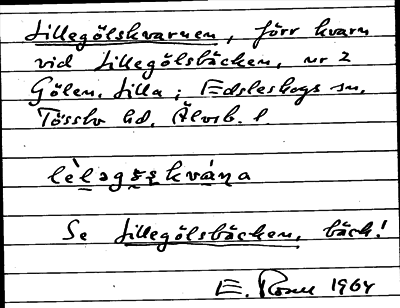 Lillegölskvarnen, förr kvarn
vid Lillegölsbäcken, nr 2
Gölen, Lilla; Edsleskogs sn,
Tössbo hd, Älvsb. l.
Se Lillegölsbäcken, bäck!
E. 1964